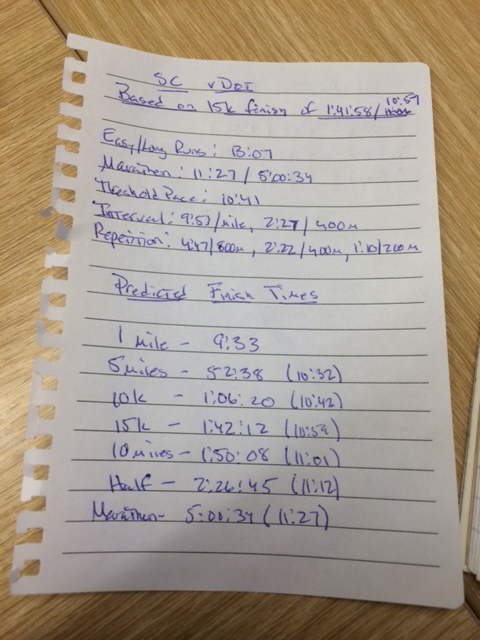 SC vDOT
Based on 15k finish of 1:41:58/10:57
Easy/Long Runs: 13:07
Marathon: 11:27 / 5:00:34
Threshold Pace: 10:41
Interval: 9:53/mile, 2:27/400m
Repetition: 4:47/800m, 2:22/400m, 1:10/200m
Predicted Finish Times
1 mile - 9:33
5 miles - 52:38 (10:32)
10k - 1:06:20 (10:42)
15k - 1:42:12 (10:58)
10 miles - 1:50:08 (11:01)
Half - 2:26:45 (11:12)
Marathon - 5:00:34 (11:27)